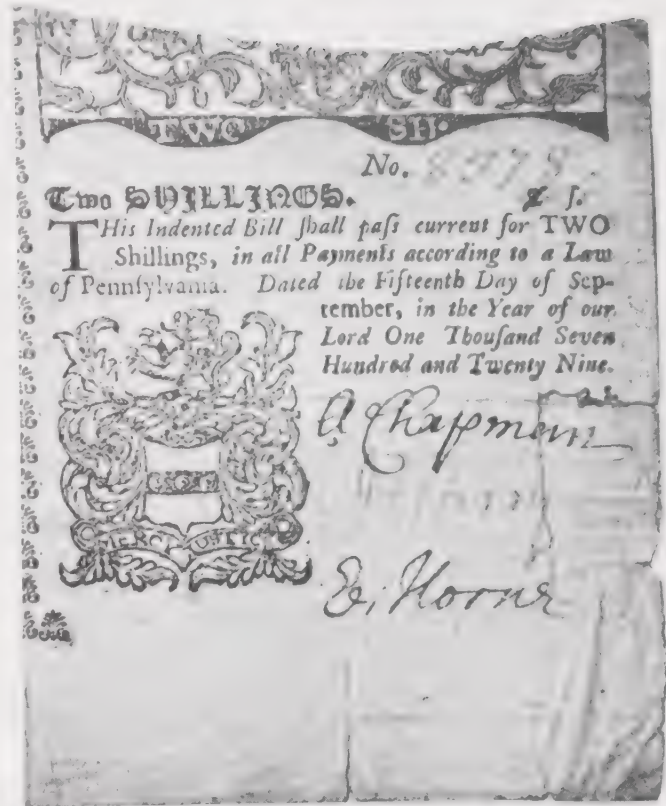 TWO SH.
No.
Two SHILLINGS. ſ.
THis Indented Bill ſhall paſs current for TWO
Shillings, in all Payments according to a Law
of Pennſylvania. Dated the Fifteenth Day of Sep-
tember, in the Year of our
Lord One Thouſand Seven
Hundred and Twenty Nine.
A Chapman
MERCY JUSTICE
E. Horne